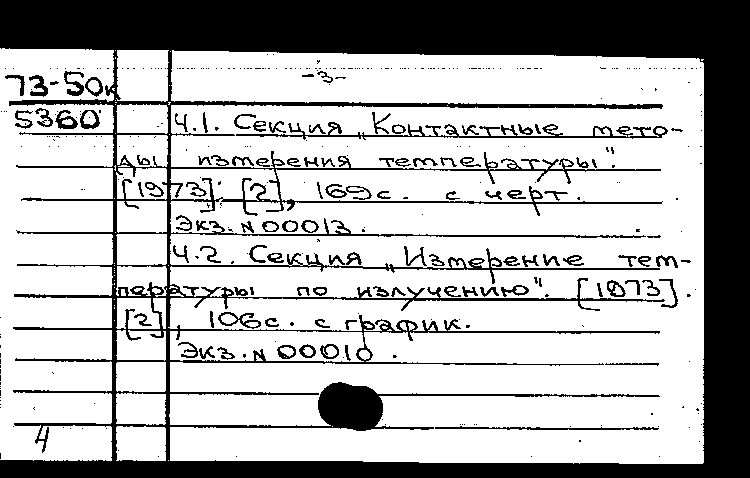 73-50к
-3-
5360
Ч.1. Секция „Контактные мето-
ды измерения температуры".
[1973]. [2], 169с. с черт.
Экз. N 00013.
Ч.2. Секция „Измерение тем-
пературы по излучению". [1973].
[2], 106с. с график.
Экз. N 00010.
4